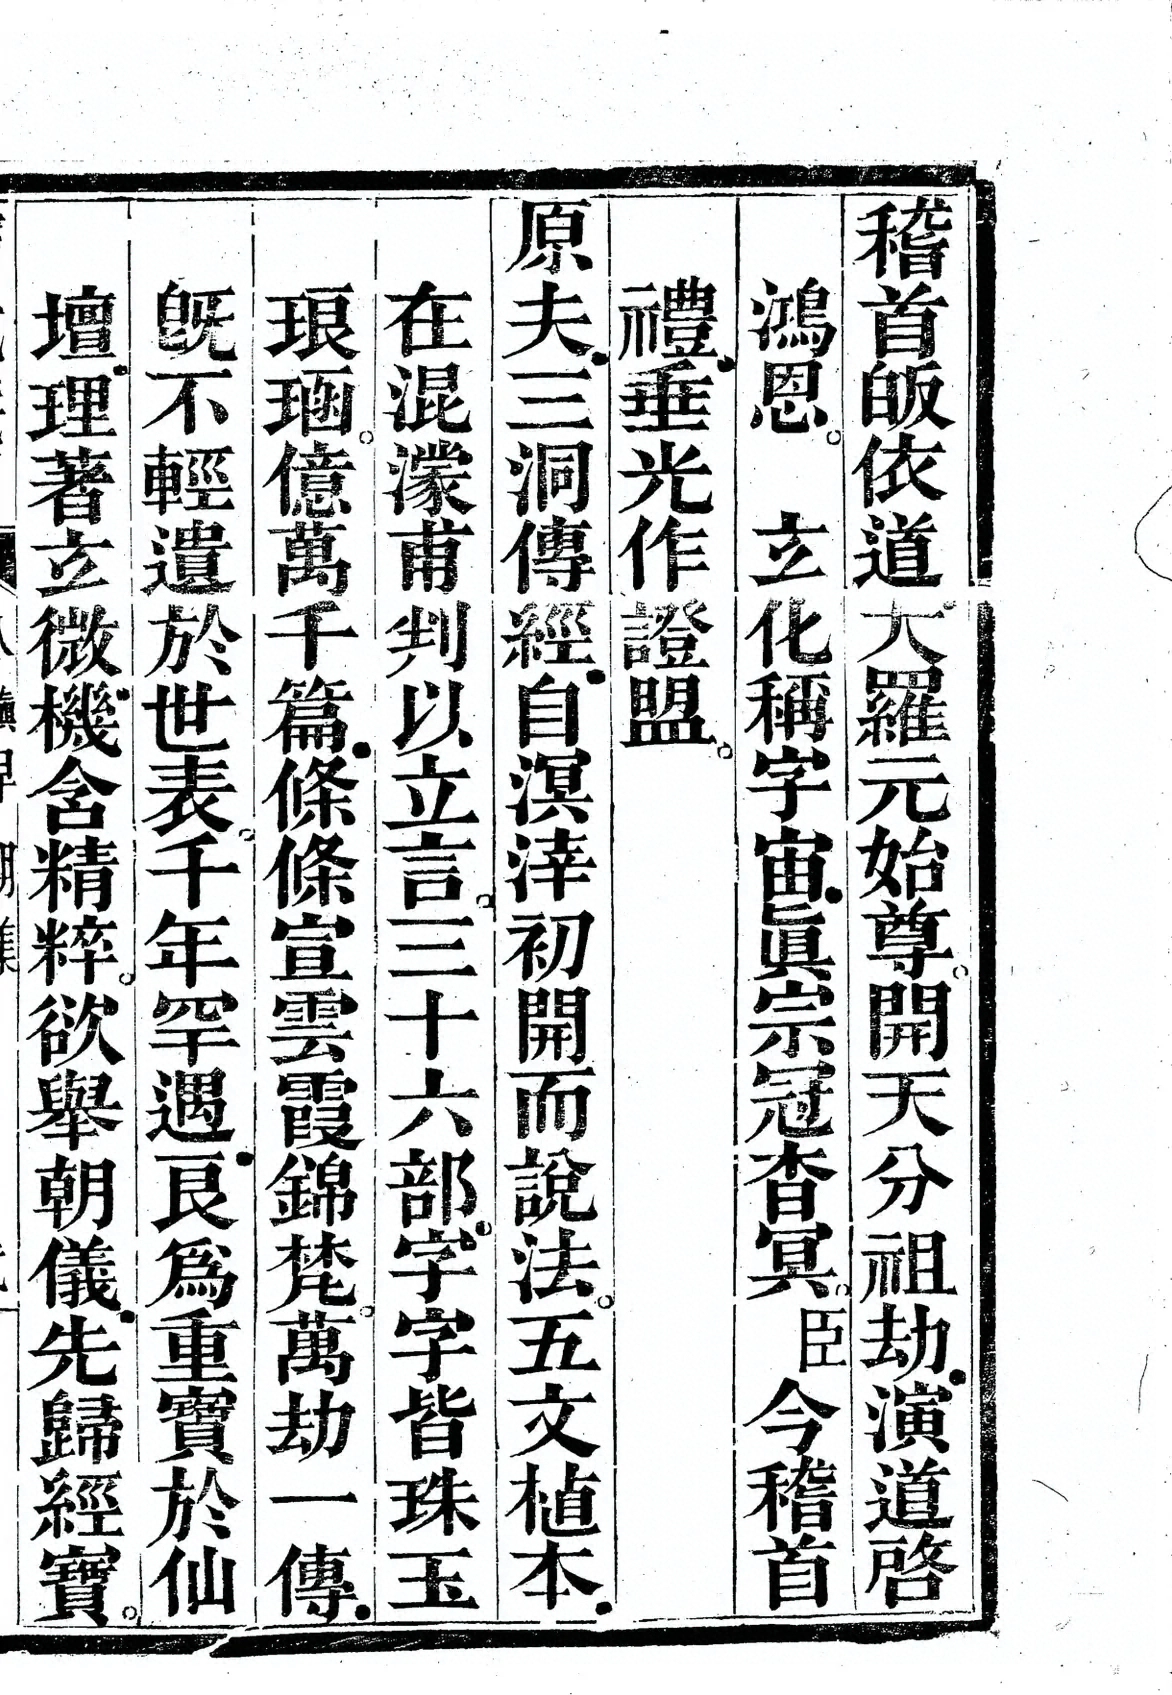 稽首皈依道大羅元始尊。開天分祖劫演道啓
鴻恩。 玄化稱字宙眞宗冠杳冥。臣今稽首
禮垂光作證盟。
原夫三洞傳經自溟涬初開而說法。五文植本
在混濛甫判以立言。三十六部字字皆珠玉
琅函。億萬千篇條條宣雲霞錦梵。萬劫一傳
旣不輕遺於世表。千年罕遇良爲重寶於仙
壇理著玄微機含精粹。欲舉朝儀先歸經寶。